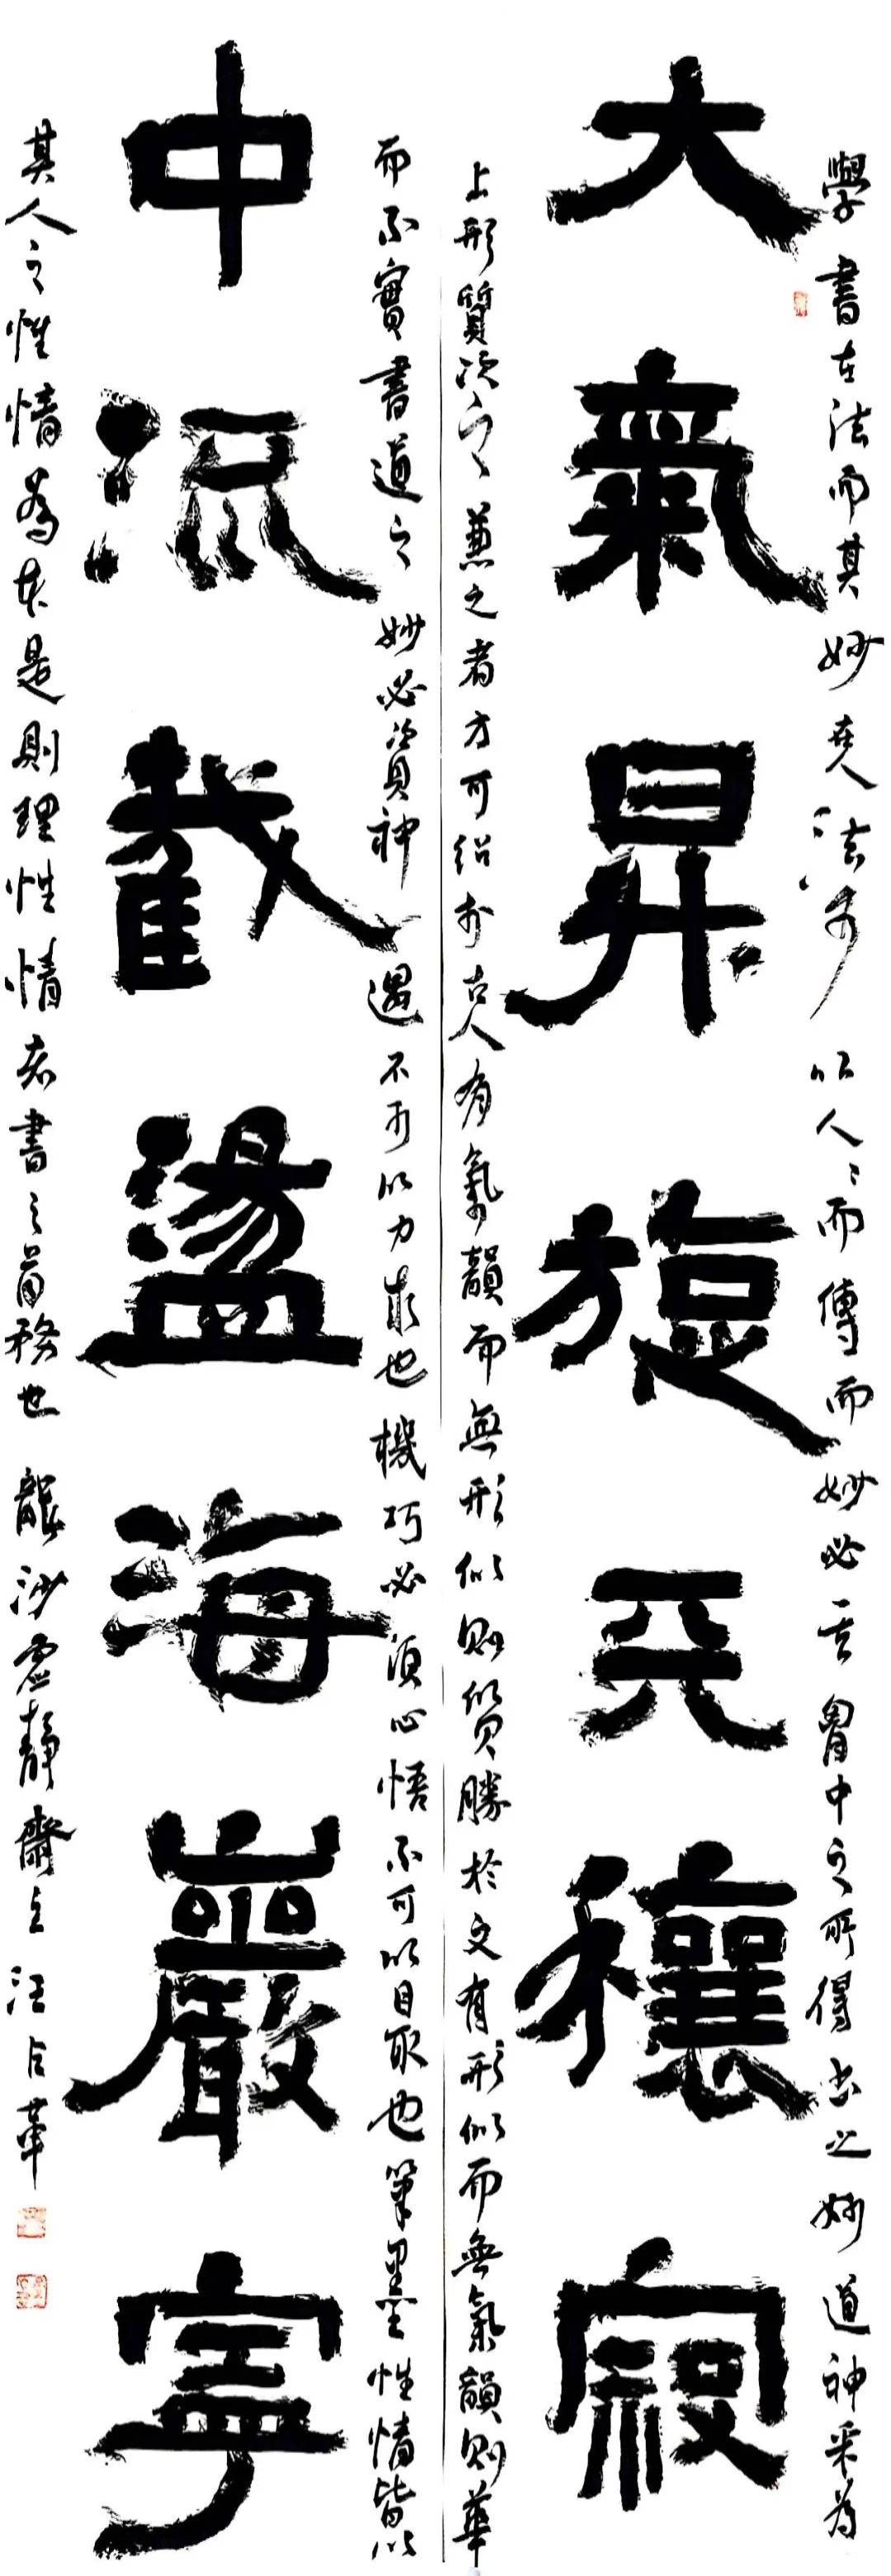 學書在法而其妙在人法可以人〻而傳而妙必其胷中之所得書之妙道神采為
大氣昇旋天穰寂
上形質次之兼之者方可紹於古人有氣韻而無形似則質勝於文有形似而無氣韻則華
而不實書道之妙必資神遇不可以力求也機巧必須心悟不可以目取也筆墨性情皆以
中流截盪海巖寧
其人之性情為本是則理性情者書之首務也 龍沙虛靜齋主汪占革